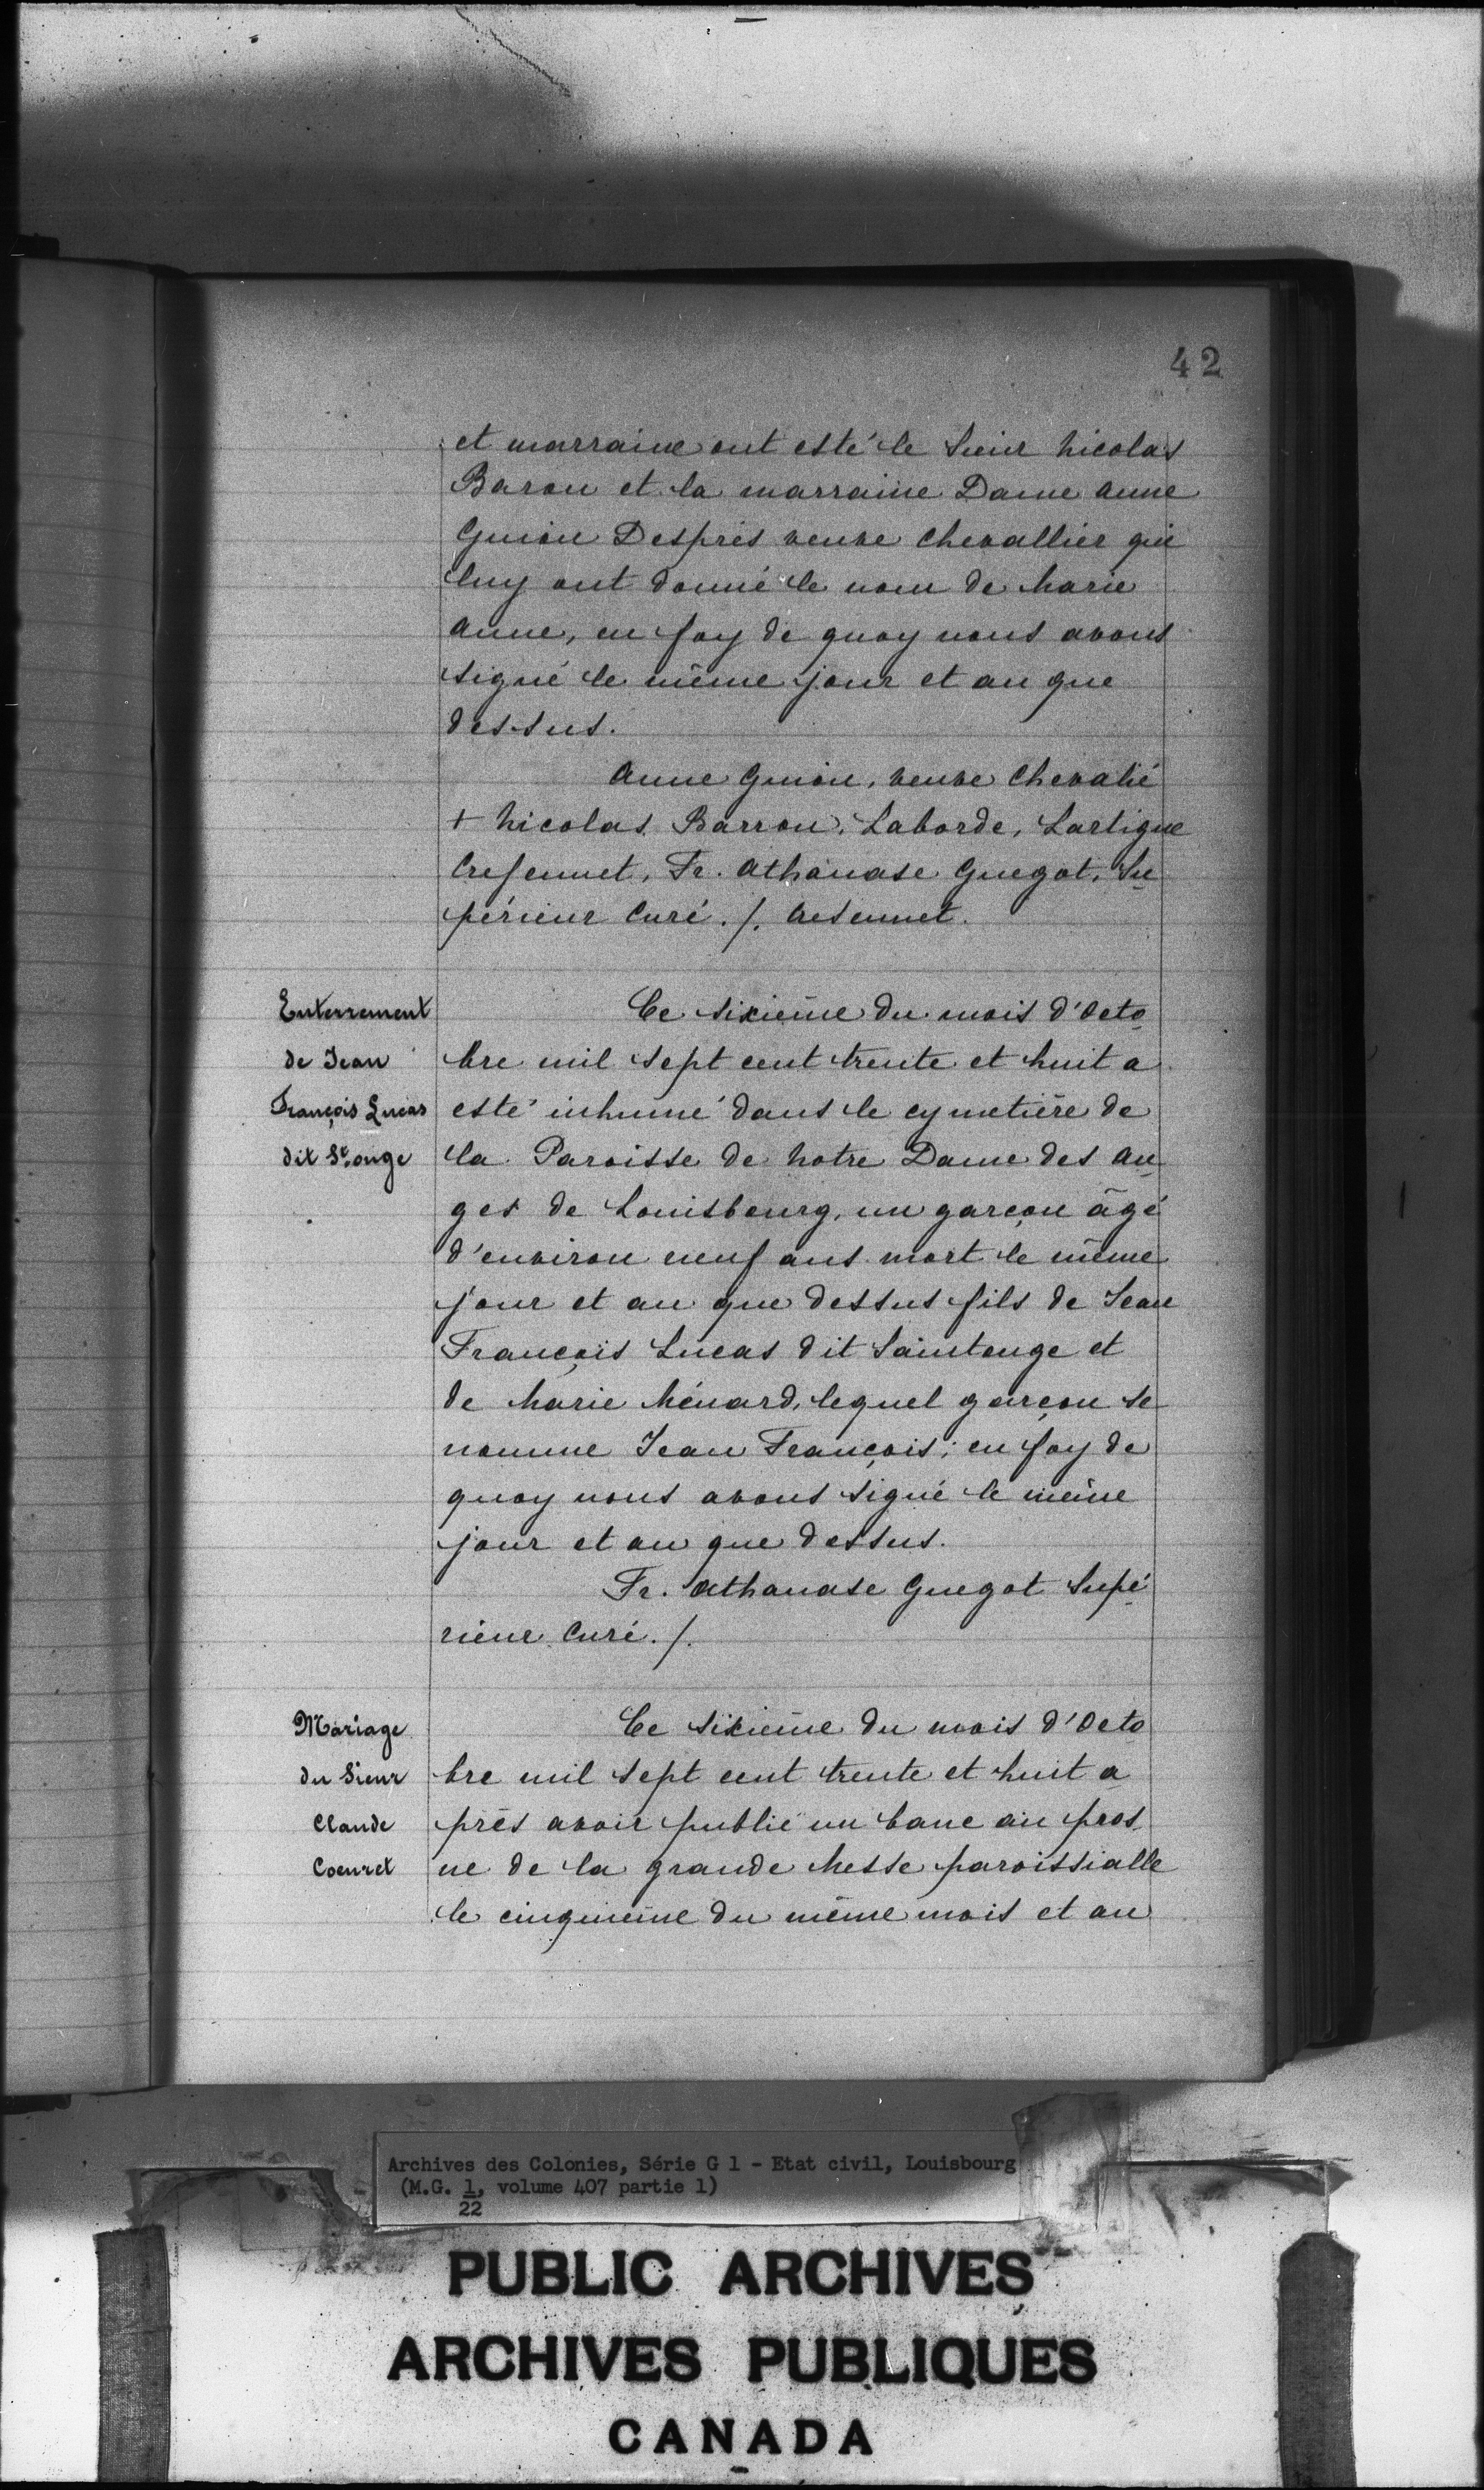 42
et marraine ont esté le Sieur Nicolas
Baron et la marraine Dame Anne
Guion Desprès veuve Chevallier qui
luy ont donné le nom de Marie
Anne, en foy de quoy nous avons
signé le même jour et an que
dessus.
Anne Guion, veuve Chevalié
+ Nicolas Barron, Laborde, Lartigue
Fr. Athanase Guegot, Su
périeur Curé. /. Cresennet.
Enterrement
de Jean
François Lucas
dit St. onge
Ce sixième du mois d'Octo
bre mil sept cent trente et huit a
esté inhumé dans le cymetière de
la Paroisse de Notre Dame des An
ges de Louisbourg, un garçon âgé
d'environ neuf ans mort le même
jour et an que dessus fils de Jean
François Lucas dit Saintonge et
de Marie Ménard, lequel garçon se
nomme Jean François; en foy de
quoy nous avons signé le même
jour et an que dessus.
Fr. Athanase Guegot Supé
rieur Curé. /.
Mariage
du Sieur
Claude
Coeuret
Ce sixième du mois d'Octo
bre mil sept cent trente et huit a
près avoir publié un banc au pros
ne de la grande Messe paroissialle
le cinquième du même mois et an
Archives des Colonies, Série G 1 - Etat civil, Louisbourg
(M.G. 1, volume 407 partie 1)
22
PUBLIC ARCHIVES
ARCHIVES PUBLIQUES
CANADA